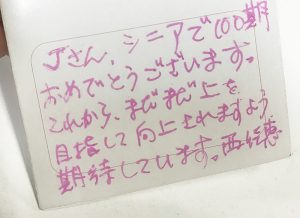 Jさん、シニアで100期
おめでとうございます。
これから、まだまだ上を
目指して向上されますよう
期待しています。西